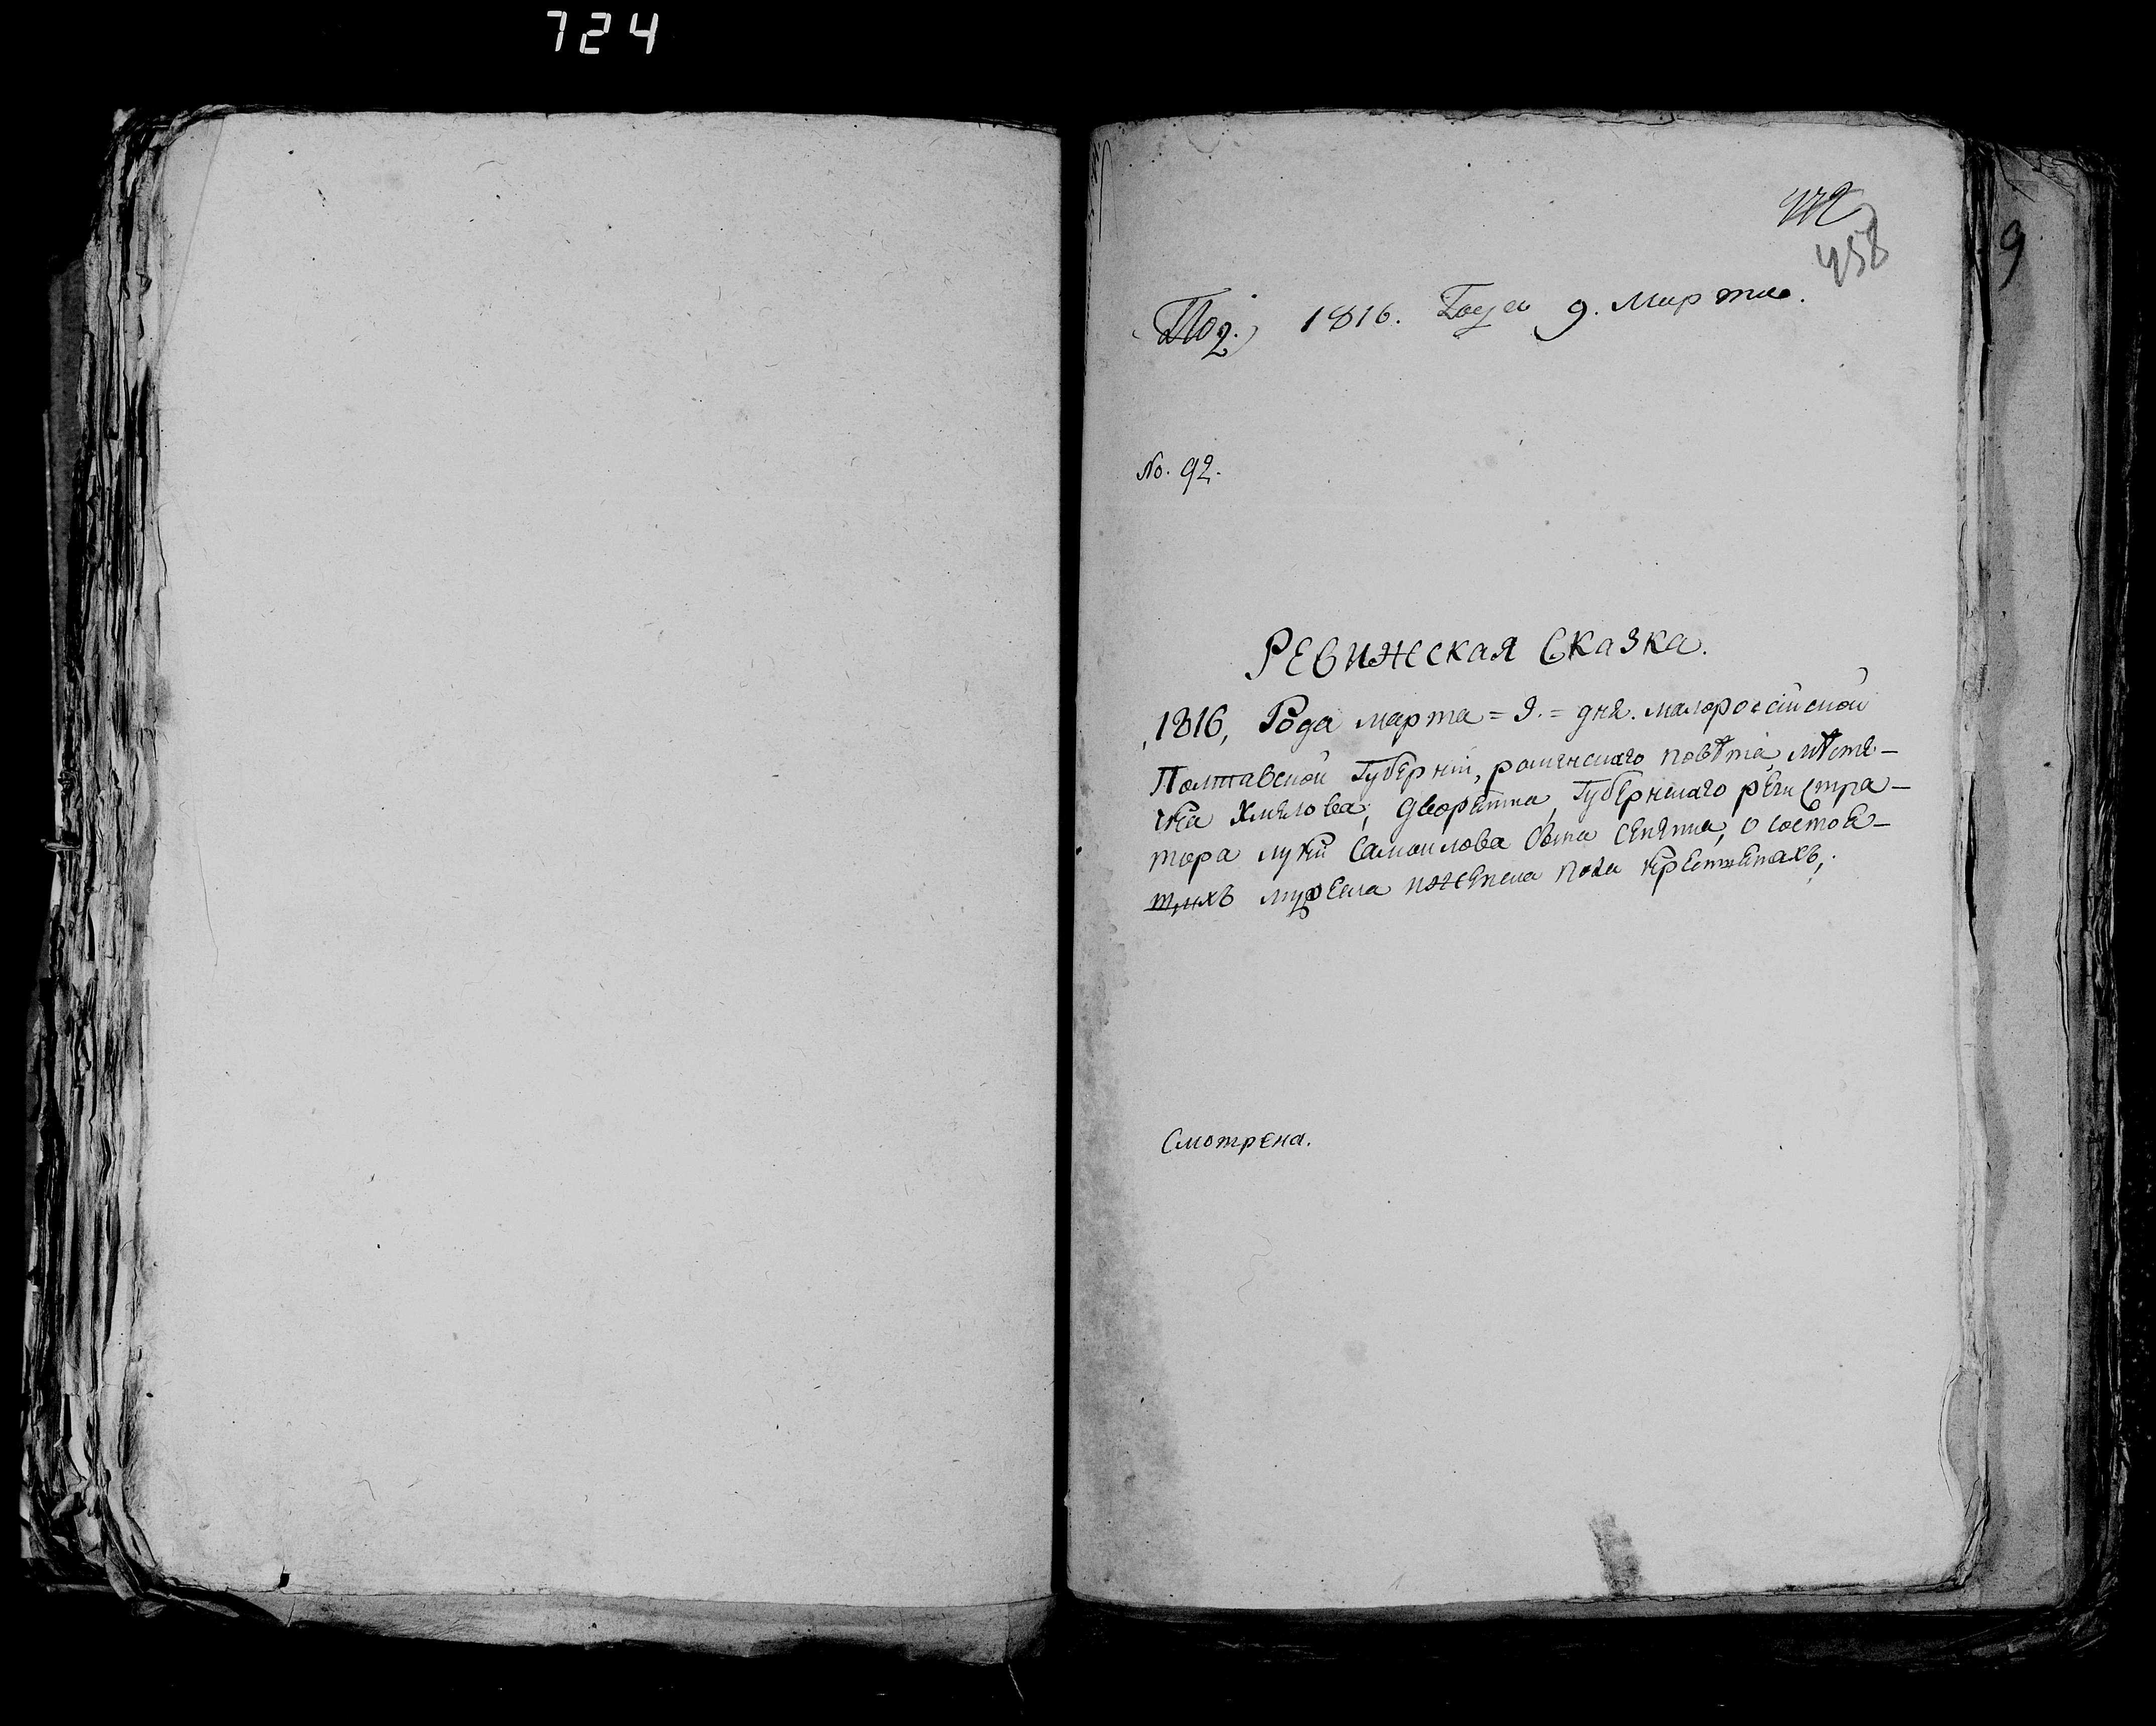 724
458
9
Под. 1816. Года 9. Марта.
No. 92.
Ревижская Сказка.
1816, Года марта = 9. = дня. малороссійской
Полтавской Губерніи, роменскаго повѣта, мѣстѣ-
чка Хмѣлова, дворянина, Губернскаго регистра-
тора луки Самоилова сына, о состоя-
щихъ мужеска иженска пола крестянахъ,
Смотрена.